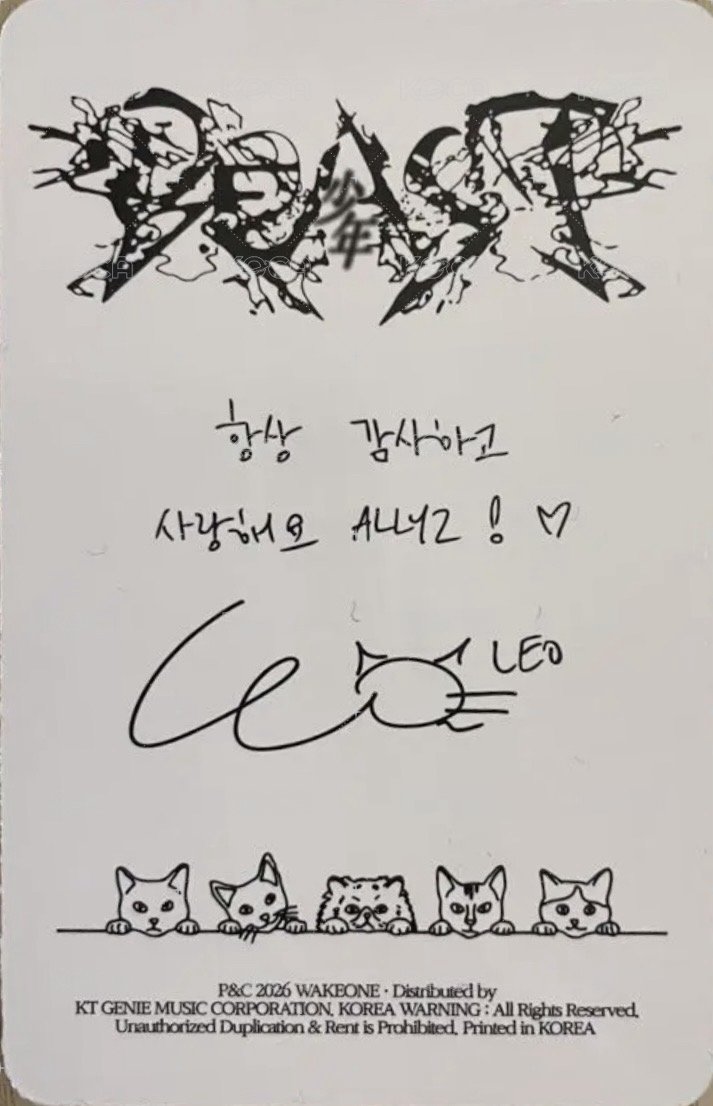 BEAST
少年
항상 감사하고
사랑해요 ALLYZ ! ♡
Leo LEO
P&C 2026 WAKEONE · Distributed by
KT GENIE MUSIC CORPORATION, KOREA WARNING : All Rights Reserved,
Unauthorized Duplication & Rent is Prohibited, Printed in KOREA